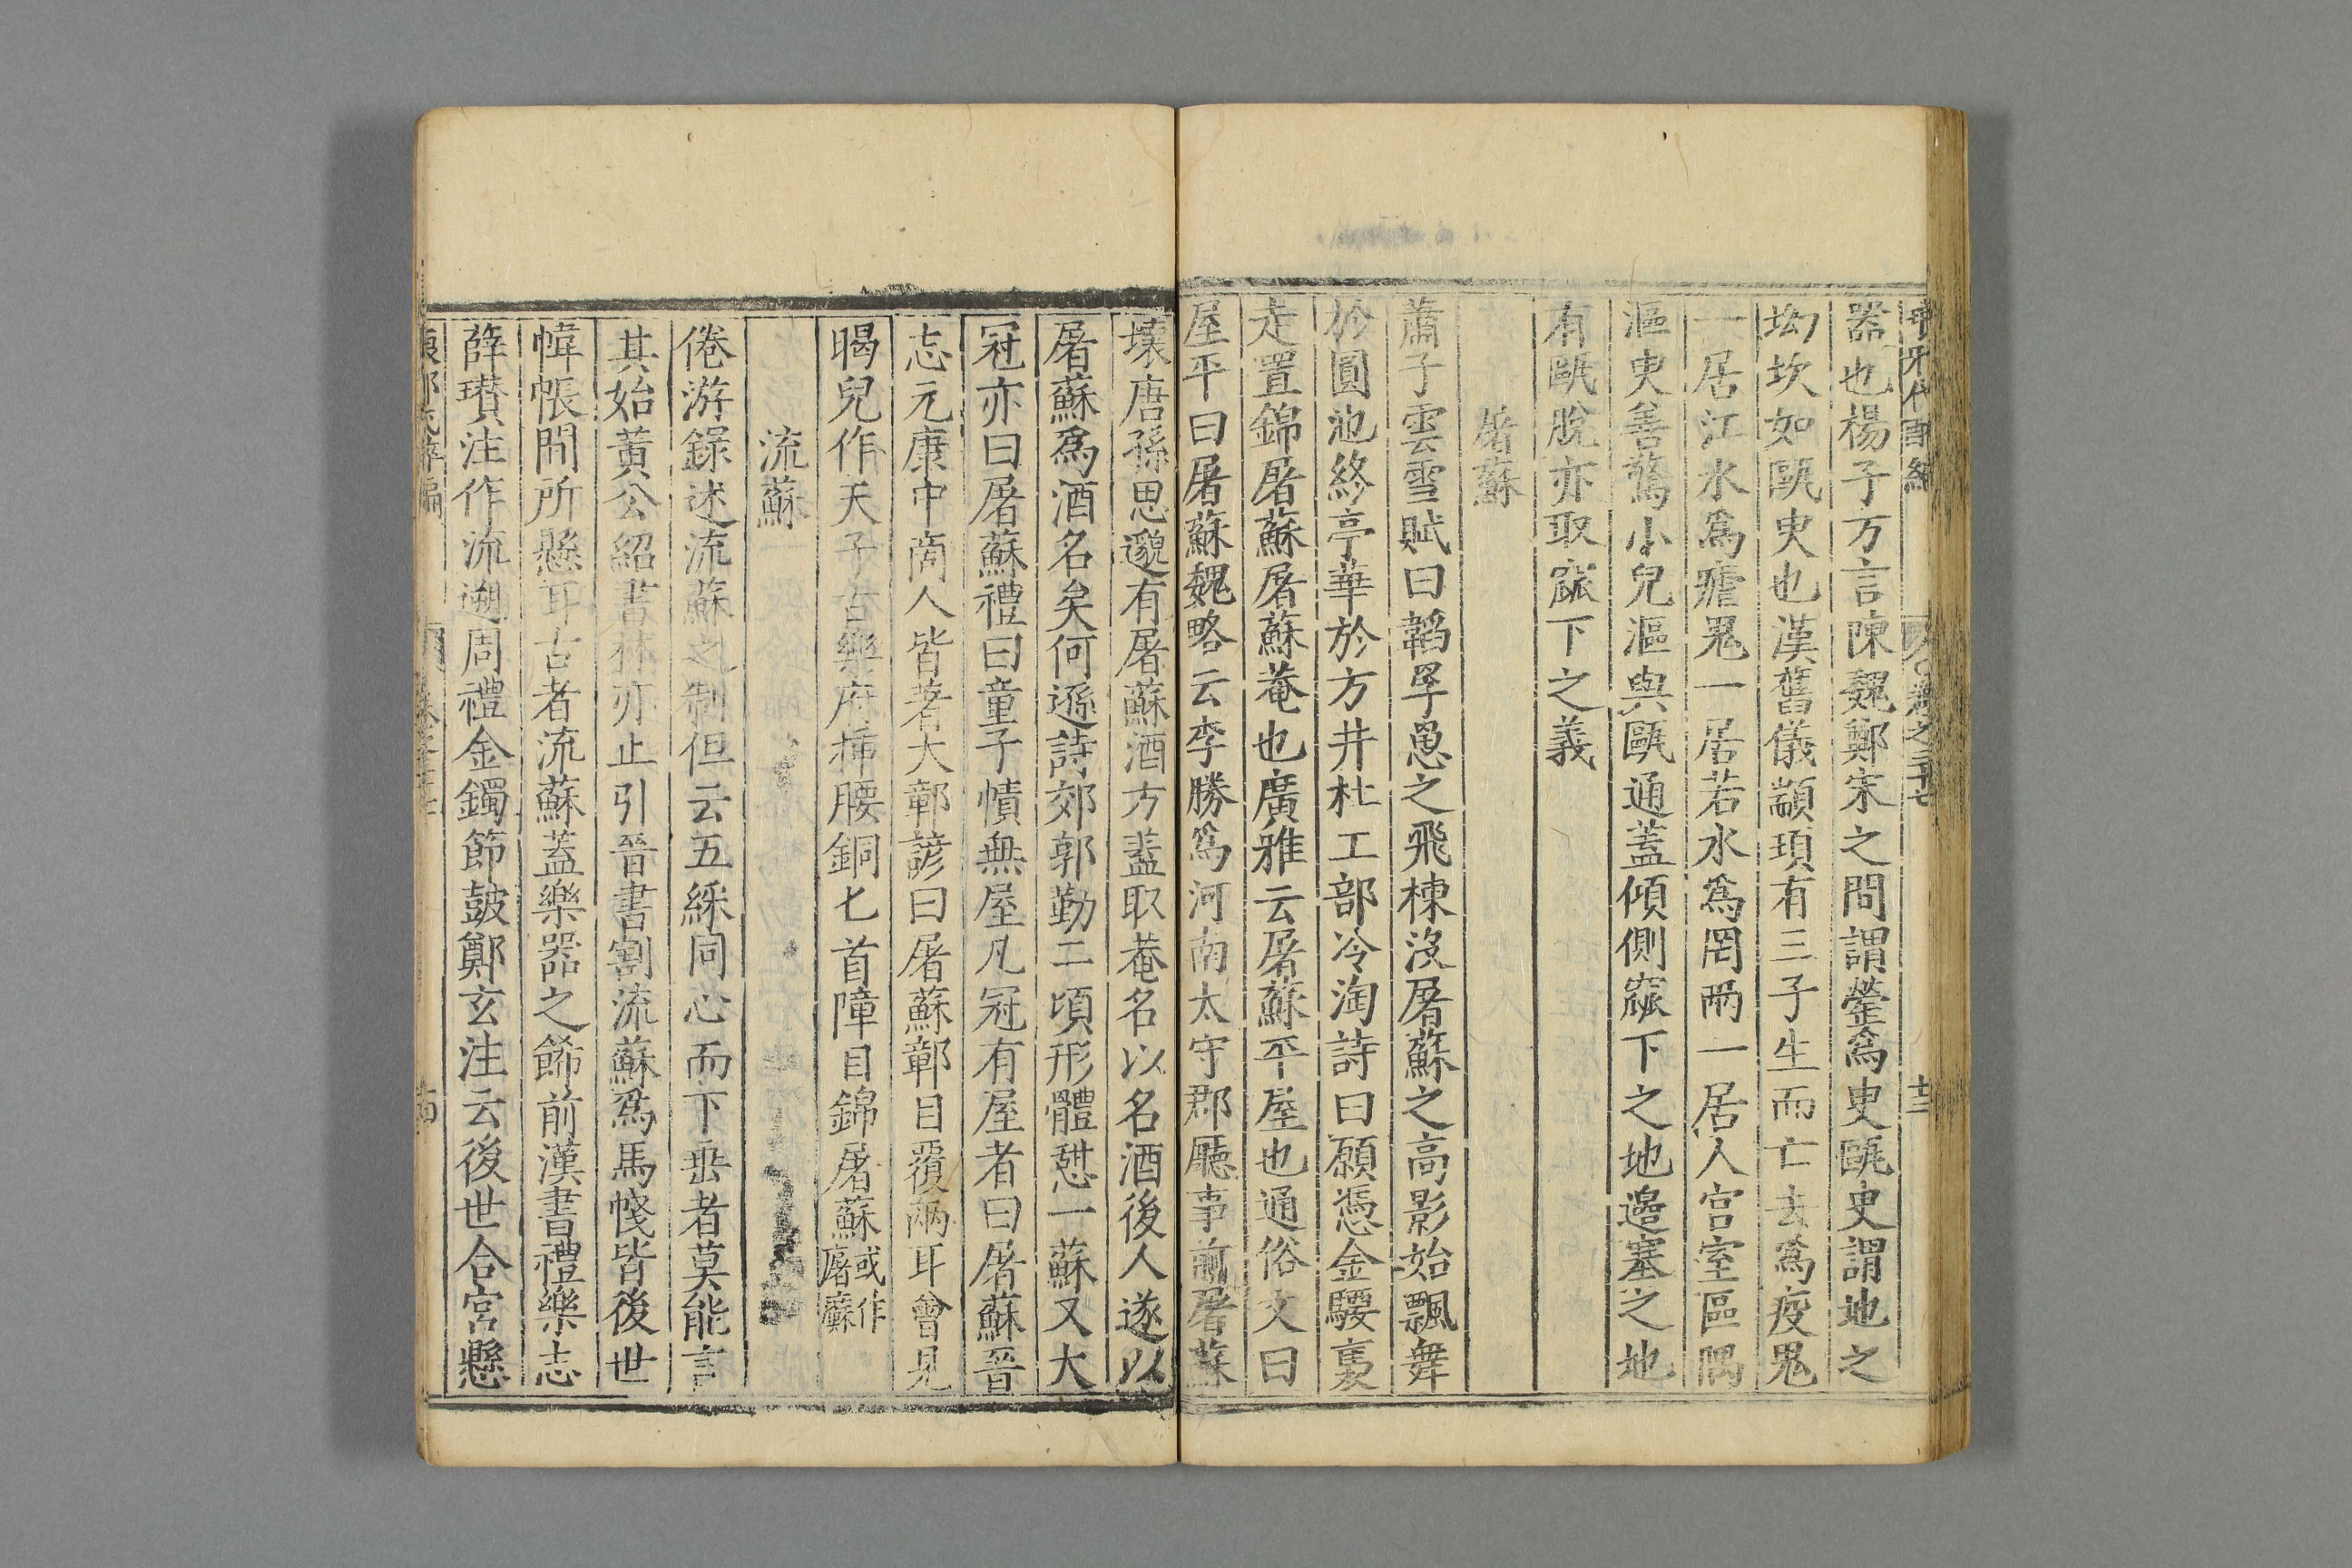 器也楊子方言陳魏鄭宋之間謂罃為㽥甌㽥謂地之
坳坎如甌㽥也漢舊儀顓頊有三子生而亡去爲疫鬼
一居江水爲瘧鬼一居若水爲罔兩一居人宮室區隅
漚㽥善驚小兒漚與甌通蓋傾側窳下之地邊塞之地
有甌脫亦取窳下之義
屠蘇
蕭子雲雪賦曰韜罘罳之飛棟沒屠蘇之高影始飄舞
於圓池終亭華於方井杜工部冷淘詩曰願憑金騕褭
走置錦屠蘇屠蘇菴也廣雅云屠蘇平屋也通俗文曰
屋平曰屠蘇魏略云李勝爲河南太守郡廳事前屠蘇
壞唐孫思邈有屠蘇酒方蓋取菴名以名酒後人遂以
屠蘇爲酒名矣何遜詩郊郭勤二頃形體憩一蘇又大
冠亦曰屠蘇禮曰童子幘無屋凡冠有屋者曰屠蘇晉
志元康中商人皆著大鄣諺曰屠蘇鄣目覆兩耳會見
暍兒作天子古樂府揷腰銅七首障目錦屠蘇或作㢝廯
流蘇
倦游錄述流蘇之制但云五綵同心而下垂者莫能言
其始黃公紹書林亦止引晉書割流蘇爲馬㡞皆後世
幃帳間所懸耳古者流蘇蓋樂器之飾前漢書禮樂志
薛瓚注作流遡周禮金鐲節鼓鄭玄注云後世合宮懸